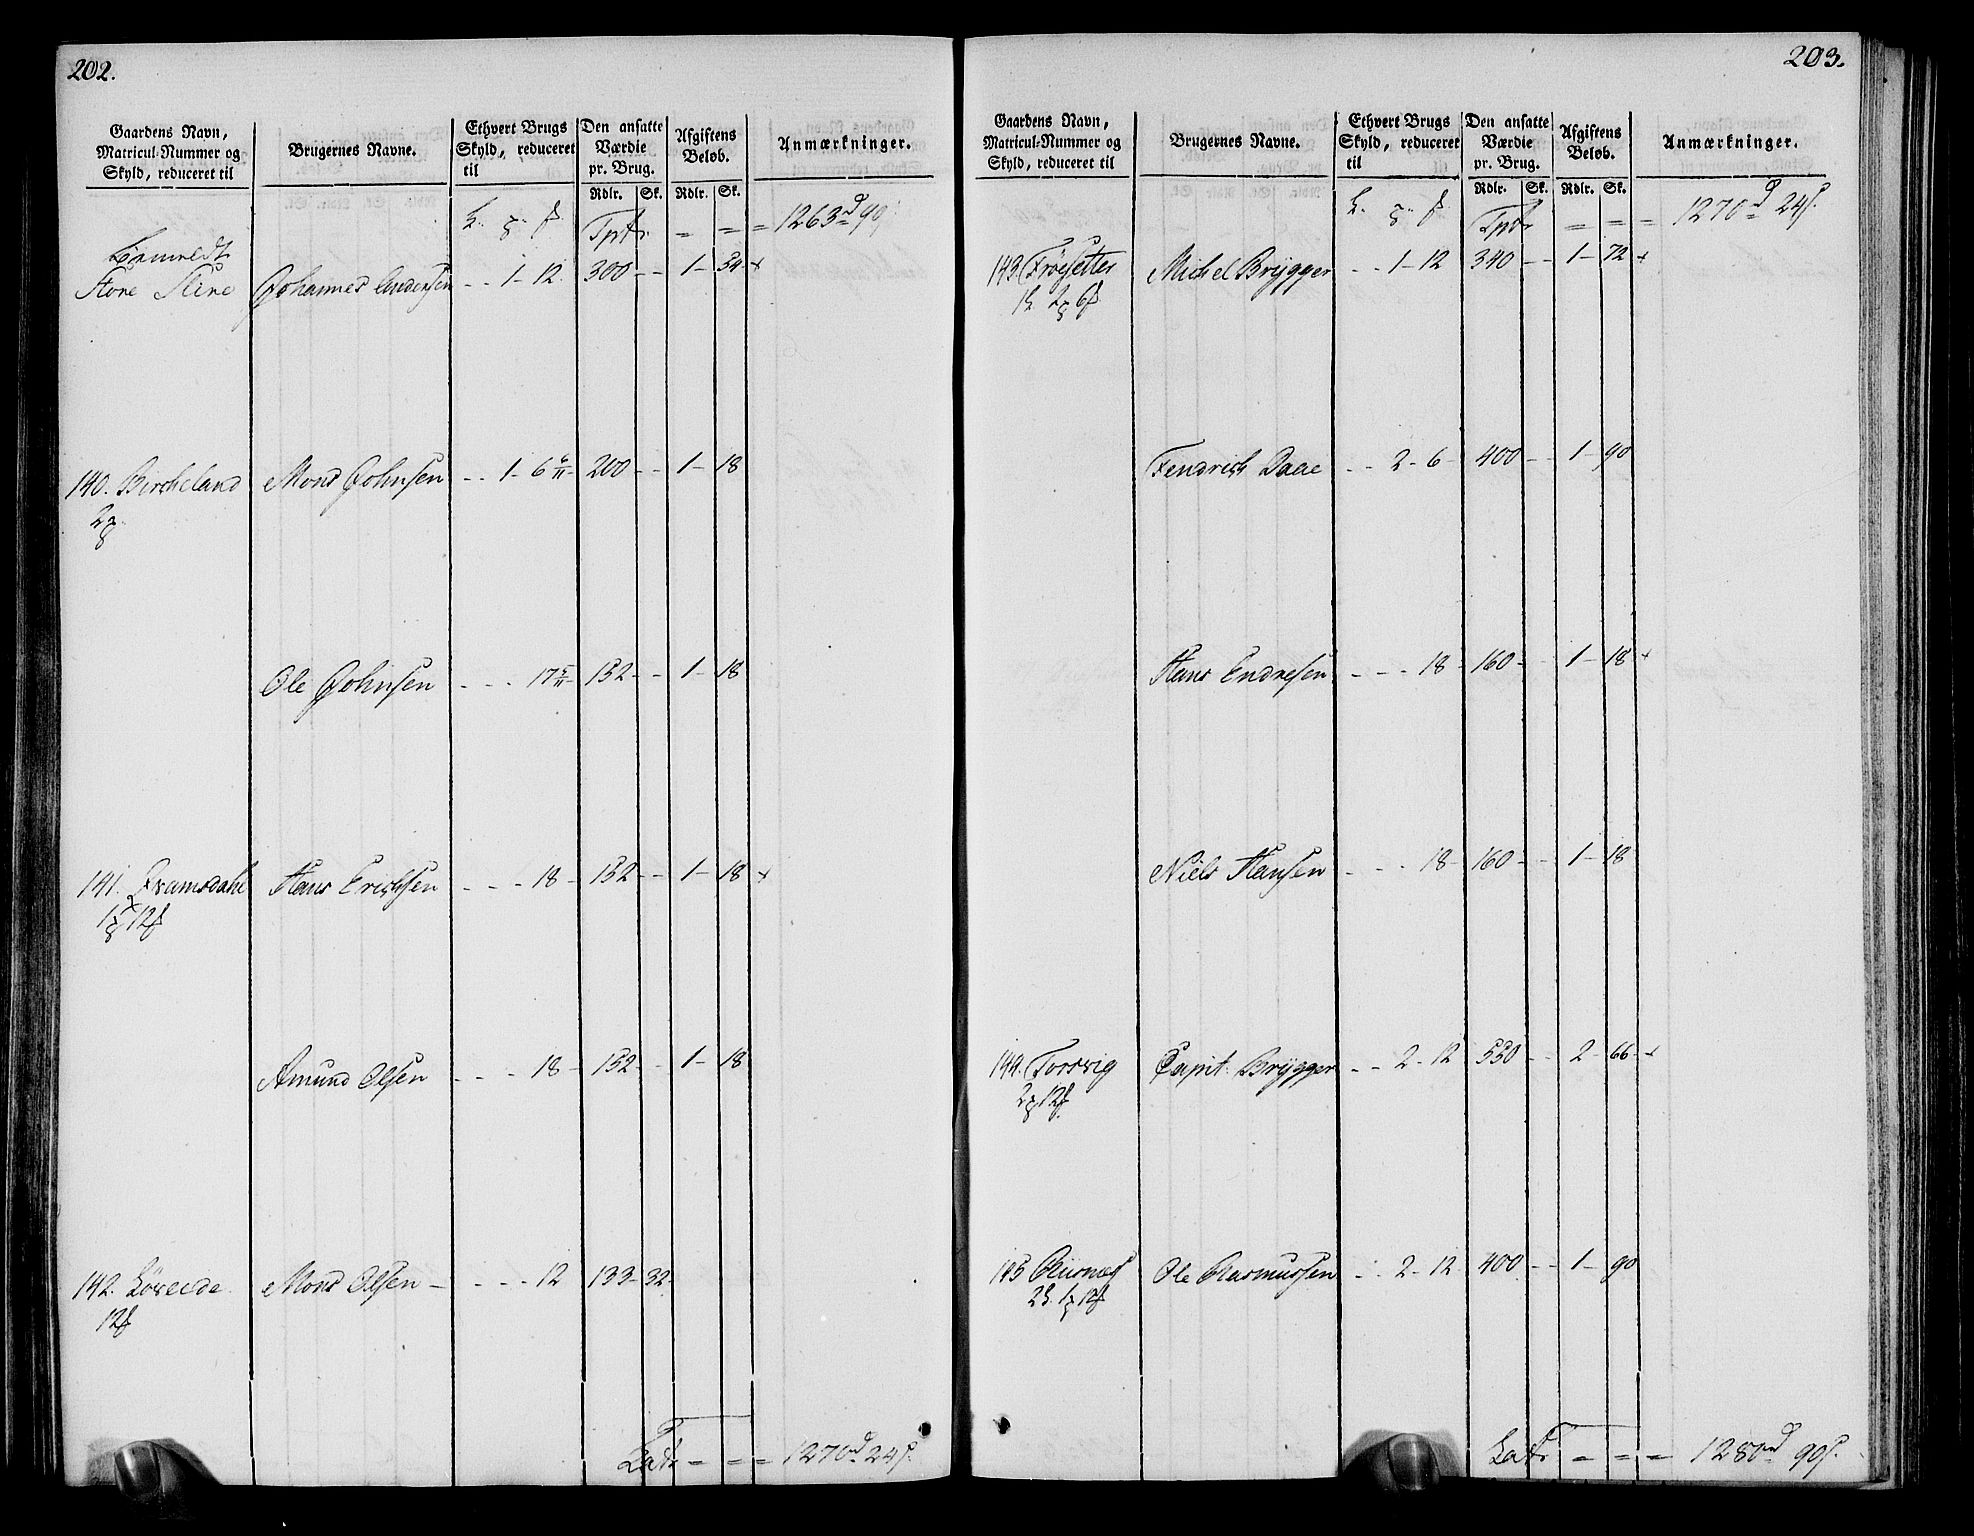 202.
Gaardens Navn, Matricul-Nummer og Skyld, reduceret til
Brugernes Navne.
Ethvert Brugs Skyld, reduceret til
Den ansatte Værdie pr. Brug.
Afgiftens Beløb.
Anmærkninger.
Rdlr. Sk. Rdlr. Sk.
Tprtr = = = 1263 d 90
Store Johannes Andersen - - 1 - 12 300 - - 1 - 54 +
140. Bircheland Mons Johnsen - - 1 - 6 6/11 - 200 - - 1 - 18
2
Ole Johnsen - - - 17 5/11 - 152 - - 1 - 18
141. Framsdahl Hans Erichsen - - - 18 - 152 - - 1 - 18 +
1 12
Amund Olsen - - - 18 - 152 - - 1 - 18
142. Løveide Mons Olsen - - - - 12 133 - 32
12
Latr = = = 1270 d 24 s.
203.
Gaardens Navn, Matricul-Nummer og Skyld, reduceret til
Brugernes Navne.
Ethvert Brugs Skyld, reduceret til
Den ansatte Værdie pr. Brug.
Afgiftens Beløb.
Anmærkninger.
Rdlr. Sk. Rdlr. Sk.
Tprtr = = = 1270 d 24 s.
143. Frøysetter Michel Brÿgger - - 1 - 12 340 - - 1 - 72 +
1 2 6
Fendrich Daae - - 2 - 6 - 400 - - 1 - 90
Hans Endresen - - - 18 - 160 - - 1 - 18 +
Niels Hansen - - - 18 - 160 - - 1 - 18
144. Torsvig Capit: Brÿgger - - 2 - 12 550 - - 2 - 66 - +
2 12
145 Ole Rasmussen - - 2 - 12 400 - - 1 - 90
2 1 12
Latr = = = 1280 d 90 s.